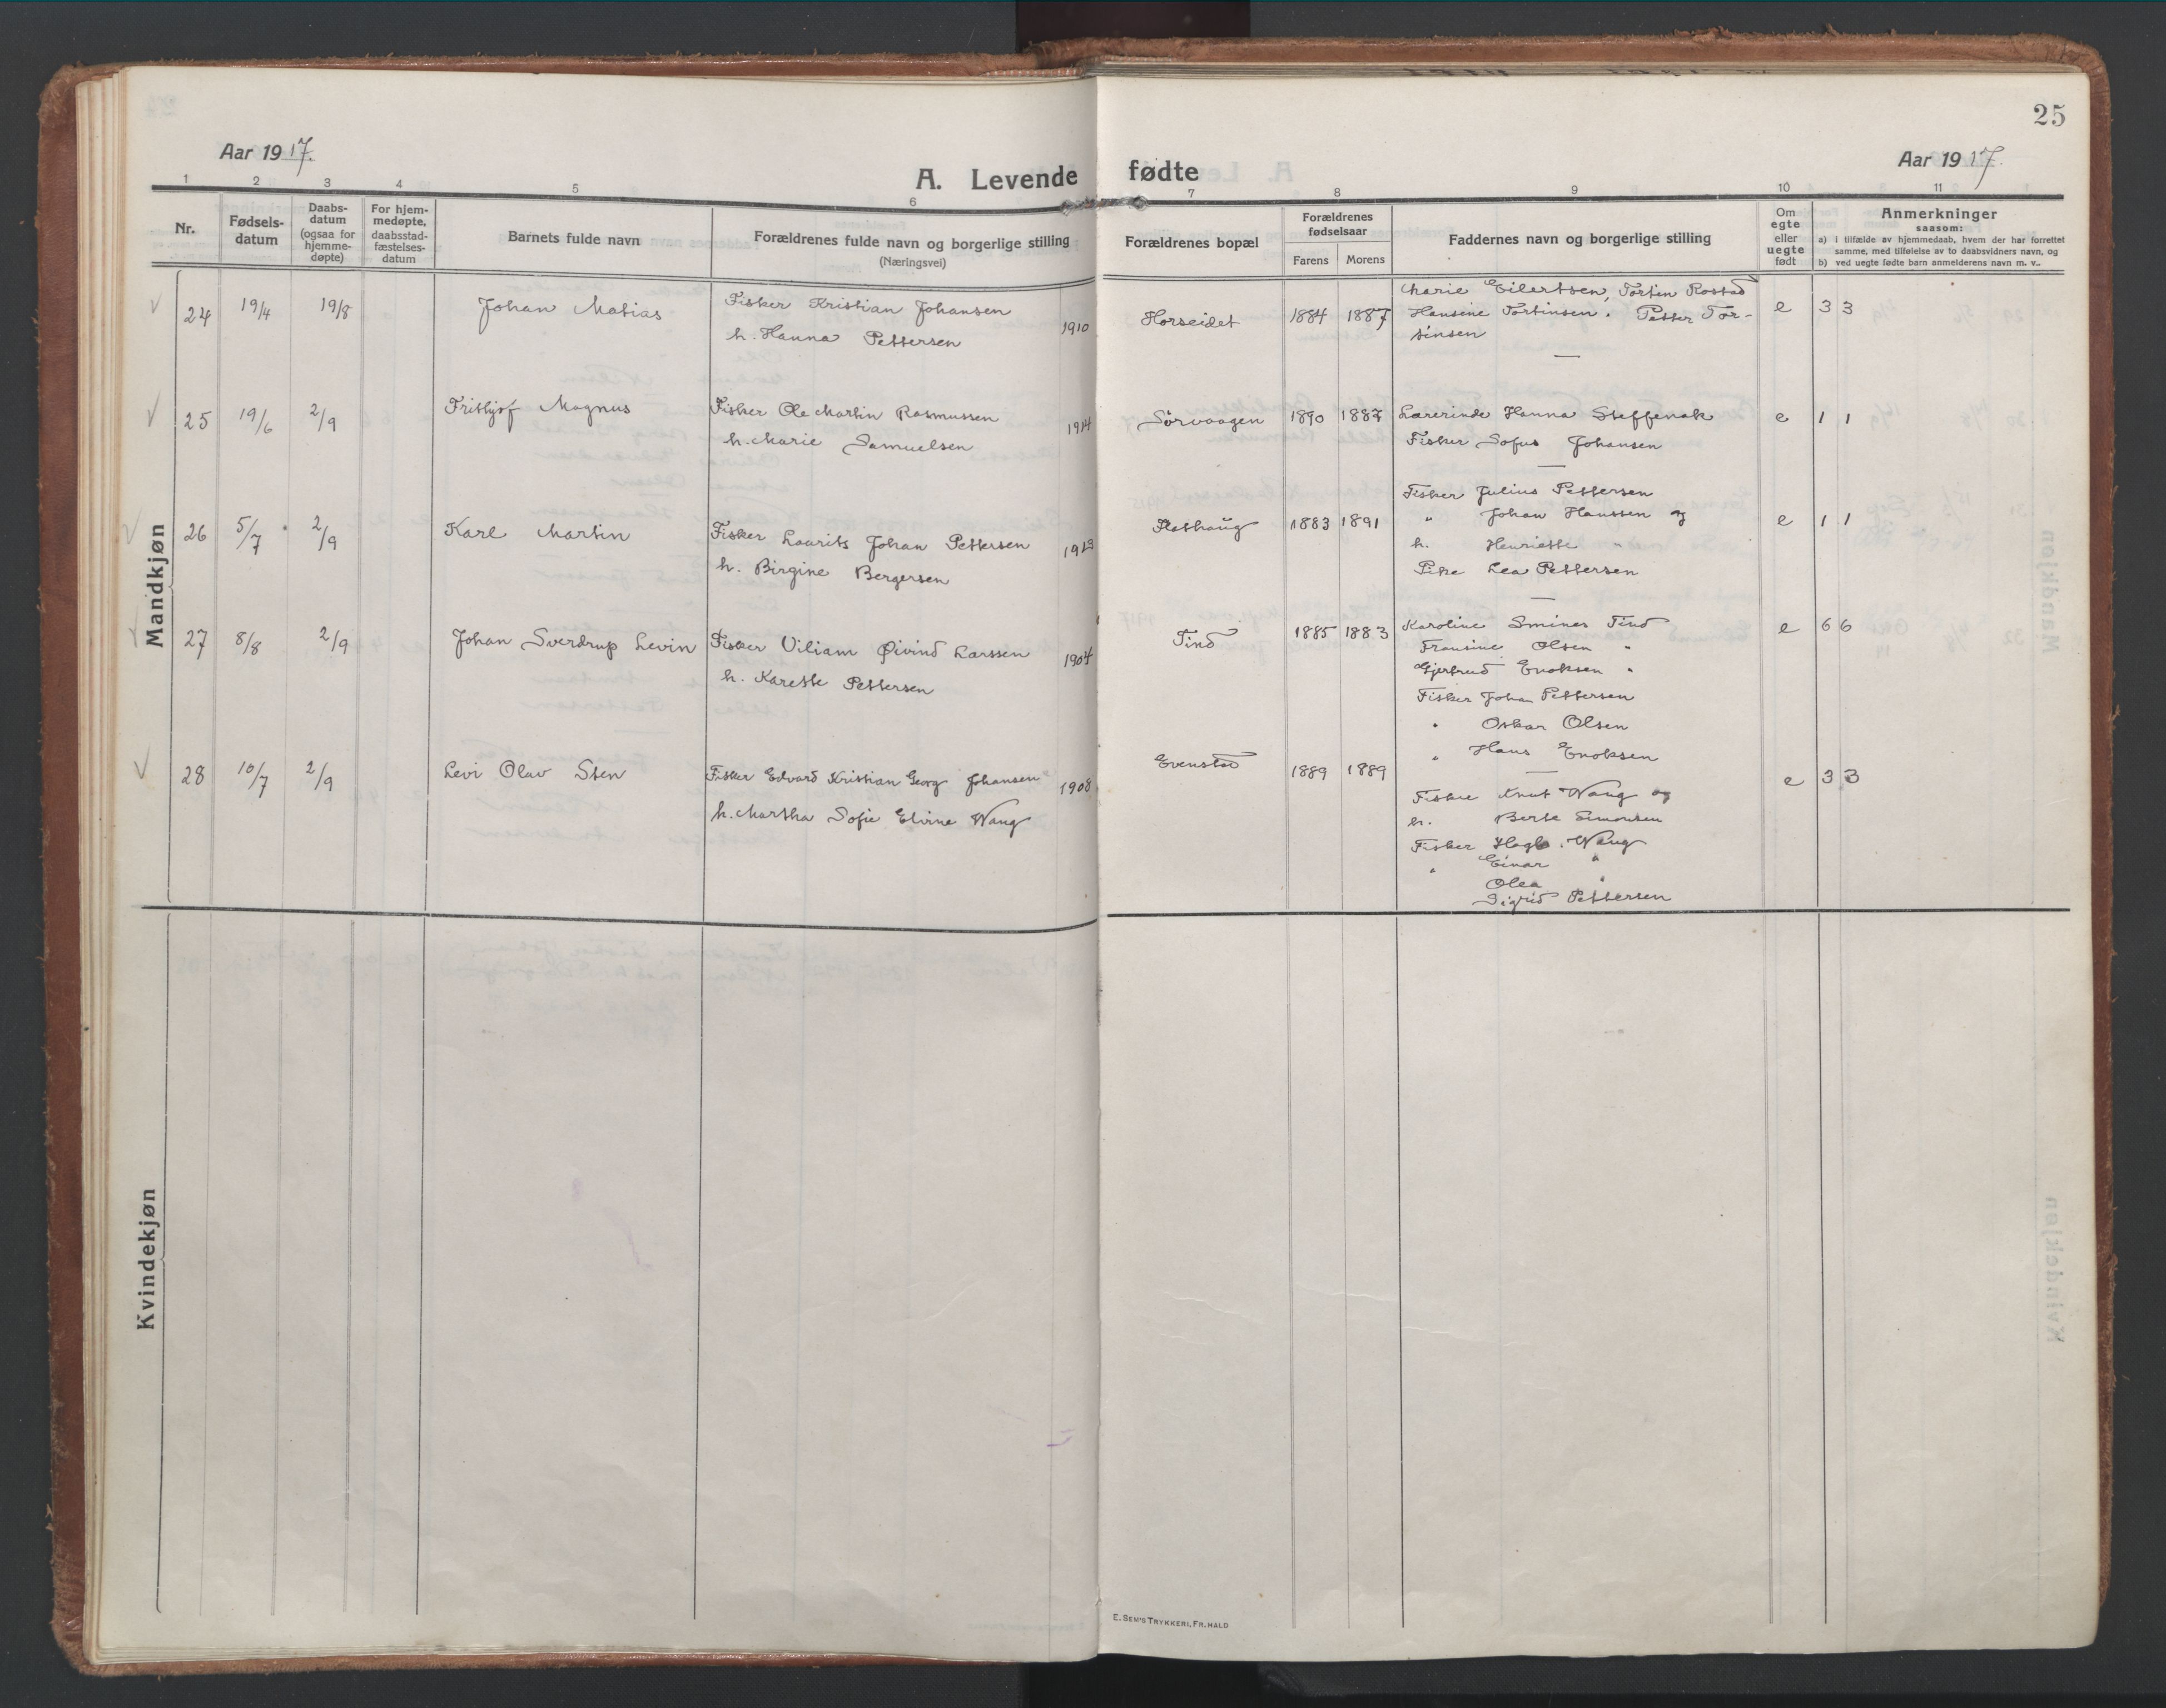 25
Aar 1917.
A. Levende fødte
Aar 1917.
1 2 3 4 5 6 7 8 9 10 11
Nr.
Fødsels-
datum
Daabs-
datum
(ogsaa for
hjemme-
døpte)
For hjem-
medøpte,
daabsstad-
fæstelses-
datum
Barnets fulde navn
Forældrenes fulde navn og borgerlige stilling
(Næringsvei)
Forældrenes bopæl
Forældrenes
fødselsaar
Farens Morens
Faddernes navn og borgerlige stilling
Om
egte
eller
uegte
født
Anmerkninger
saasom:
a) i tilfælde av hjemmedaab, hvem der har forrettet
samme, med tilføielse av to daabsvidners navn, og
b) ved uegte fødte barn anmelderens navn m. v..
Mandkjøn
24 19/4 19/8 Johan Matias
Fisker Kristian Johansen
h. Hanna Pettersen
1910 Horseidet 1884 1887
Marie Eilertsen, Tortin Rostad
Hansine Tortinsen. Petter Tor-
tinsen
e 3 3
25 19/6 2/9 Fritjof Magnus
Fisker Ole Martin Rasmussen
h. Marie Samuelsen
1914 Sørvaagen 1890 1887
Lærerinde Hanna Steffenak
Fisker Sofus Johansen
e 1 1
26 5/7 2/9 Karl Martin
Fisker Laurits Johan Pettersen
h. Birgine Bergersen
1913 Flathaug 1883 1891
Fisker Julius Pettersen
" Johan Hanssen og
h. Henriette "
Pike Lea Pettersen
e 1 1
27 8/8 2/9 Johan Sverdrup Levin
Fisker Viliam Øivind Larssen
h. Karette Pettersen
1904 Tind 1885 1883
Karoline Smines Tind
Fransine Olsen "
Gjertrud Enoksen "
Fisker Johan Pettersen
" Oskar Olsen
" Hans Enoksen
e 6 6
28 10/7 2/9 Levi Olav Sten
Fisker Edvard Kristian Georg Johansen
h. Martha Sofie Elvine Wang
1908 Evenstad 1889 1889
Fisker Knut Wang og
h. Berte Simonsen
Fisker Hagb. Wang
" Einar "
Olea "
Sigrid Pettersen
e 3 3
Kvindekjøn
E. Sem's Trykkeri, Fr.hald